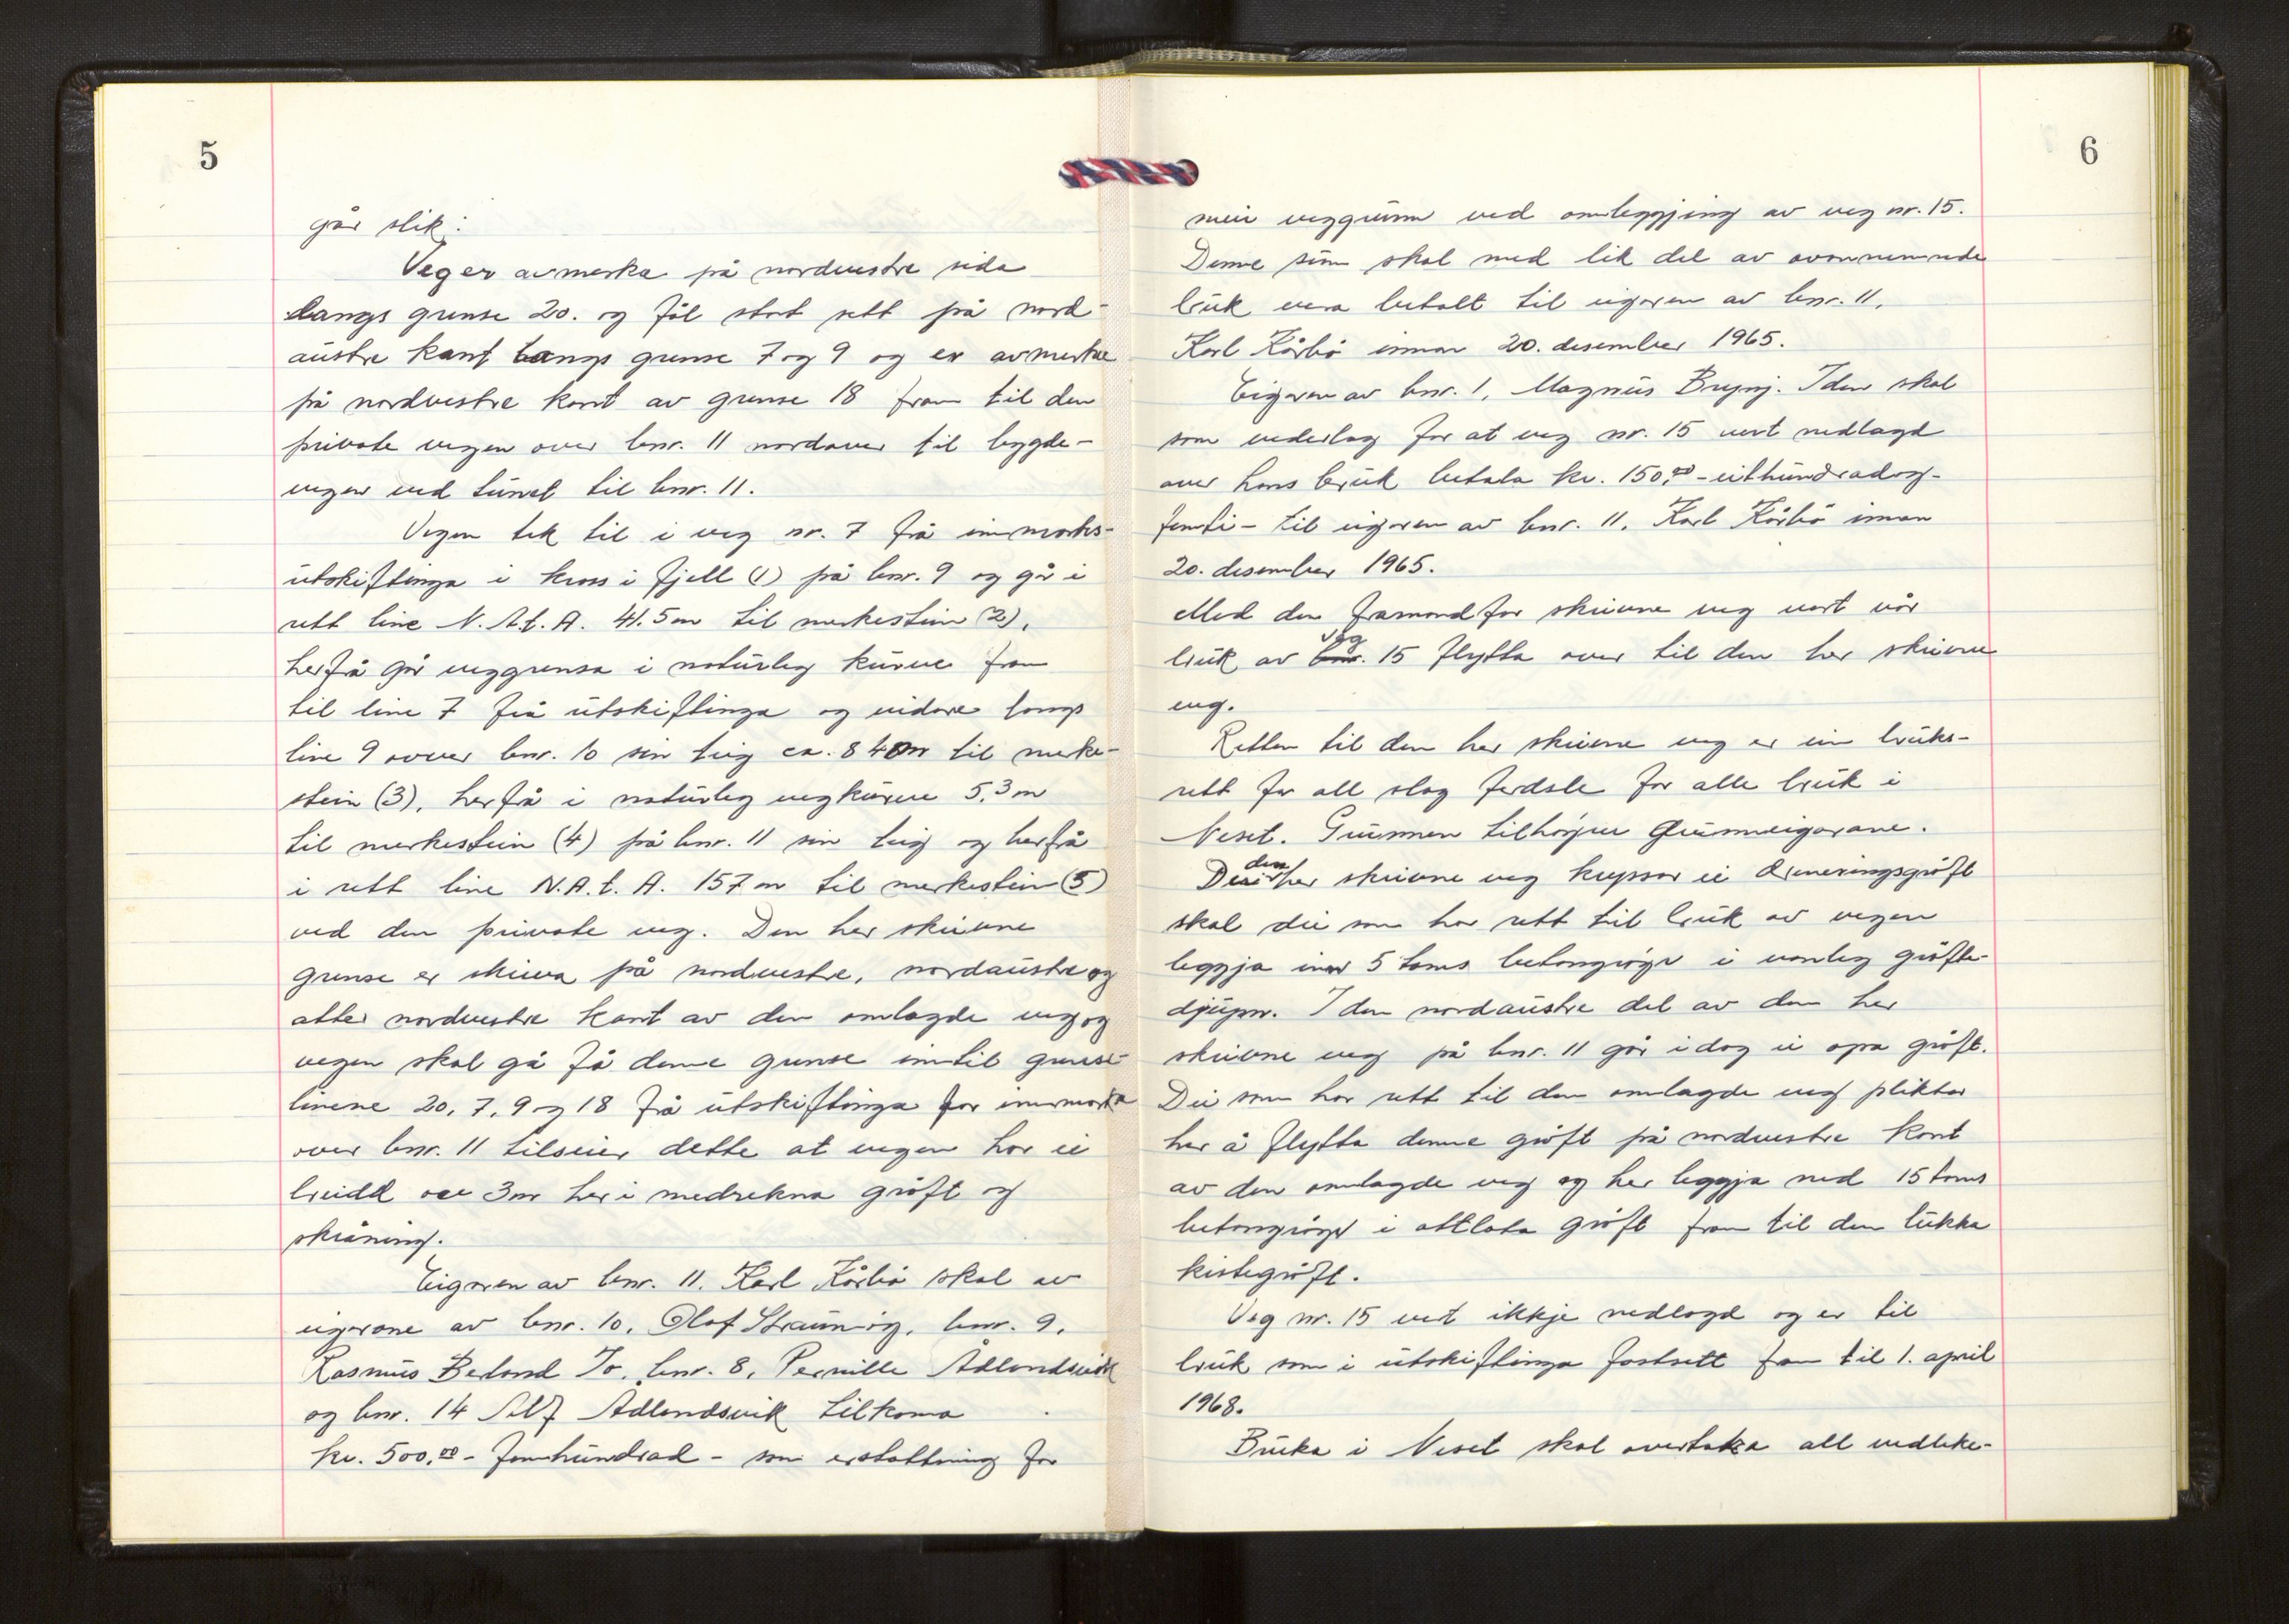 5
går slik:
Veg er avmerka på nordvestre sida
langs grense 20. og fål stort sett på nord-
austre kant langs grense 7 og 9 og er avmerka
på nordvestre kant av grense 18 fram til den
private vegen over bnr. 11 nordover til bygde-
vegen ved tunet til bnr. 11.
Vegen tek til i veg nr. 7 frå innmarks-
utskiftinga i kross i fjell (1) på bnr. 9 og går i
rett line N.A.t.A. 41.5 m til merkestein (2),
herfrå går veggrensa i naturleg kurve fram
til line 7 frå utskiftinga og vidare langs
line 9 over bnr. 10 sin teig ca. 84 m til merke-
stein (3), herfrå i naturleg vegkurve 5,3 m
til merkestein (4) på bnr. 11 sin teig og herfrå
i rett line N.A.t.A. 157 m til merkestein (5)
ved den private veg. Den her skrivne
grense er skriva på nordvestre, nordaustre og
atter nordvestre kant av den omlagde veg og
vegen skal gå frå denne grense inntil grense-
linene 20, 7, 9 og 18 frå utskiftinga for innmarka
over bnr. 11 tilseier dette at vegen har ei
breidd av 3 m her i medrekna grøft og
skråning.
Eigaren av bnr. 11. Karl Kårbø skal av
eigarane av bnr. 10, Olaf Straumøy, bnr. 9,
Rasmus Berland Jo, bnr. 8, Pernille Ådlandsvik
og bnr. 14 Alf Ådlandsvik tilkoma
kr. 500,00 - femhundrad - som erstattning for
6
mein veggrunn ved omleggjing av veg nr. 15.
Denne sum skal med lik del av ovannemnde
bruk vera betalt til eigaren av bnr. 11,
Karl Kårbø innan 20. desember 1965.
Eigaren av bnr. 1, Magnus Brynj. Idsø skal
som vederlag for at veg nr. 15 vert nedlagd
over hans bruk betala kr. 150,00 - eithundradog-
femti - til eigaren av bnr. 11. Karl Kårbø innan
20. desember 1965.
Med den framanfor skrivne veg vert vår
bruk av veg 15 flytta over til den her skrivne
veg.
Retten til den her skrivne veg er ein bruks-
rett for all slag ferdsle for alle bruk i
Neset. Grunnen tilhøyrer Grunneigarane.
Der den her skrivne veg kryssar ei dreneringsgrøft
skal dei som har rett til bruk av vegen
leggja inn 5 toms betongrøyr i vanleg grøfte-
djupn. I den nordaustre del av den her
skrivne veg på bnr. 11 går i dag ei open grøft.
Dei som har rett til den omlagde veg pliktar
her å flytta denne grøft på nordvestre kant
av den omlagde veg og her leggja ned 15 toms
betongrøyr i attlata grøft fram til den lukka
kistegrøft.
Veg nr. 15 vert ikkje nedlagd og er til
bruk som i utskiftinga fastsett fram til 1. april
1968.
Bruka i Neset skal overtaka all vedlike-